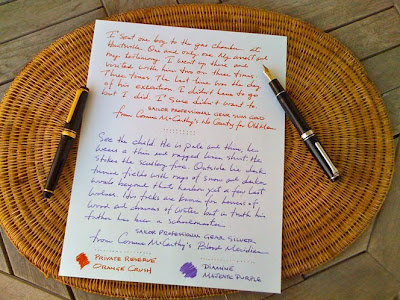 I sent one boy to the gas chamber at
Huntsville. One and only one. My arrest and
my testimony. I went up there and
visited with him two or three times.
Three times. The last time was the day
of his execution. I didn't have to go
but I did. I sure didn't want to.
SAILOR PROFESSIONAL GEAR SLIM GOLD
from Cormac McCarthy's No Country for Old Men
See the child. He is pale and thin, he
wears a thin and ragged linen shirt. He
stokes the scullery fire. Outside lie dark
turned fields with rags of snow and darker
woods beyond that harbor yet a few last
wolves. His folks are known for hewers of
wood and drawers of water but in truth his
father has been a schoolmaster.
SAILOR PROFESSIONAL GEAR SILVER
from Cormac McCarthy's Blood Meridian
PRIVATE RESERVE
ORANGE CRUSH
DIAMINE
MAJESTIC PURPLE